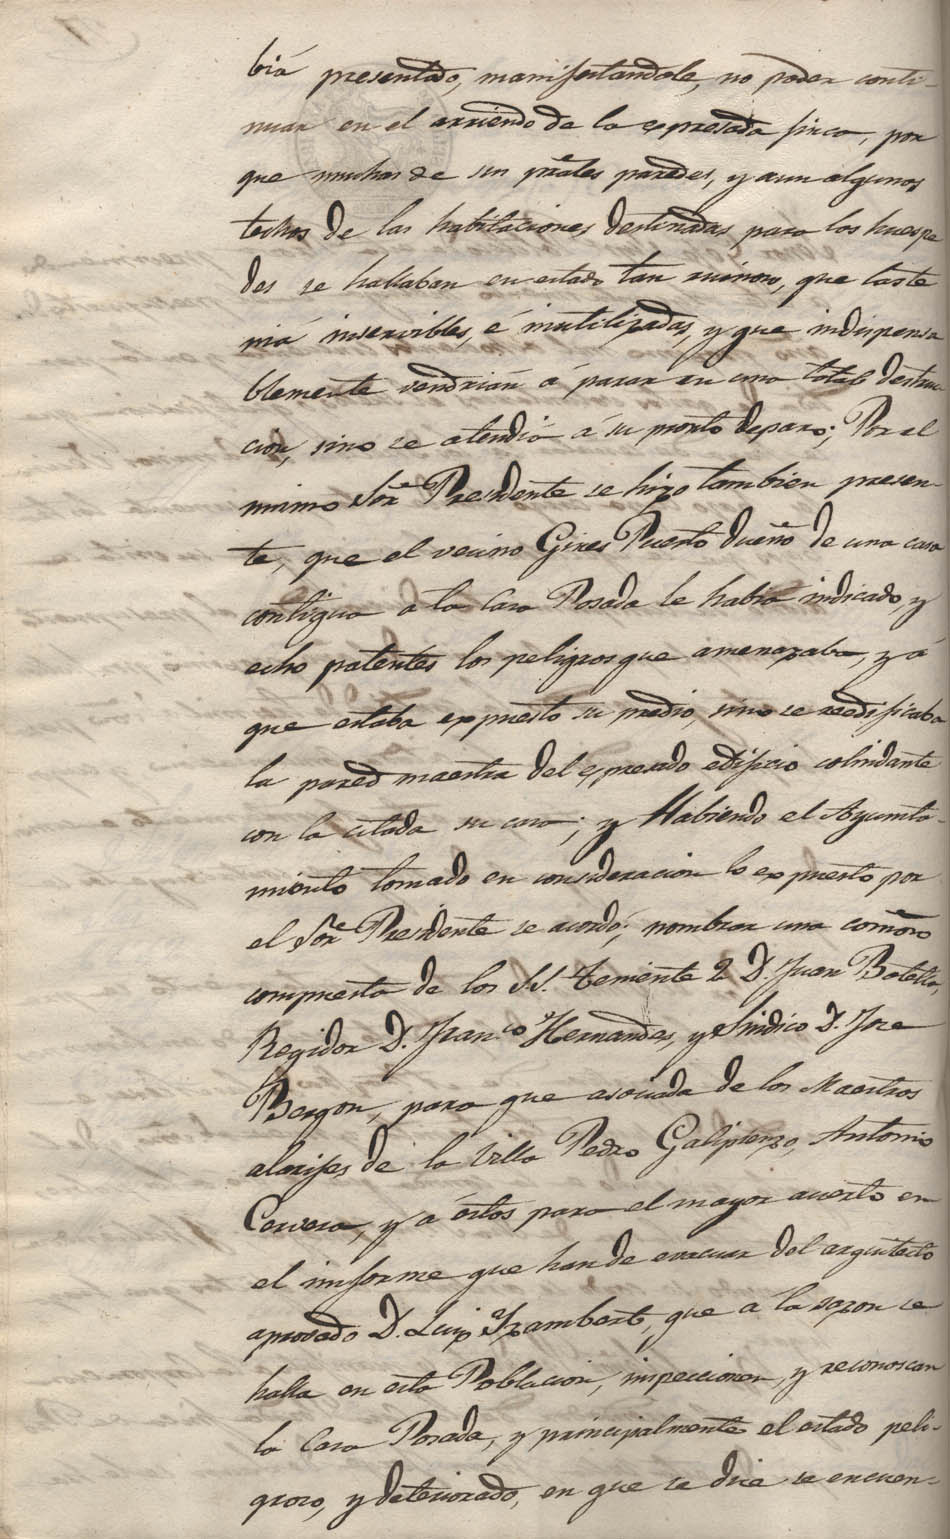 bia presentado, manifestandole, no poder conti-
nuar en el arriendo de la expresada finca, por
que muchas de sus prales paredes, y aun algunos
techos de las habitaciones destinadas para los huespe
des se hallaban en estado tan ruinoso, que las te
nia inservibles, é inutilizadas, y que indispensa
blemente vendrian á parar en una total destruc
cion, sino se atendia á su pronto reparo; Por el
mismo Sor. Presidente se hizo tambien presen-
te, que el vecino Gines Puerto dueño de una casa
contigua a la Casa Posada le habia indicado, y
echo patentes los peligros que amenazaba, y á
que estaba expuesto su predio, sino se reedificaba
la pared maestra del expresado edificio colindante
con la citada su casa; y Habiendo el Ayunta-
miento tomado en consideracion lo expuesto por
el Sor. Presidente se acordó; nombrar una comon.
compuesta de los SS. Teniente 2º D. Juan Botella,
Regidor D. Franco. Hernandes, y Sindico D. Jose
Bergon, para que asociada de los Maestros
alarifes de la Villa Pedro Galipienzo, Antonio
Cervera, y á estos para el mayor acierto en
el informe que han de evacuar del arquitecto
aprovado D. Luis Yzambert, que a la sazon se
halla en esta Poblacion, inspeccionen, y reconoscan
la Casa Posada, y principalmente el estado peli-
groso, y deteriorado, en que se dice se encuen-